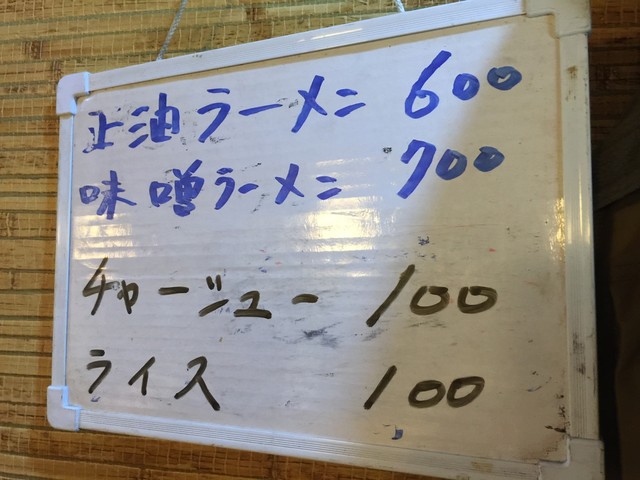 正油ラーメン 600
味噌ラーメン 700
チャーシュー 100
ライス 100